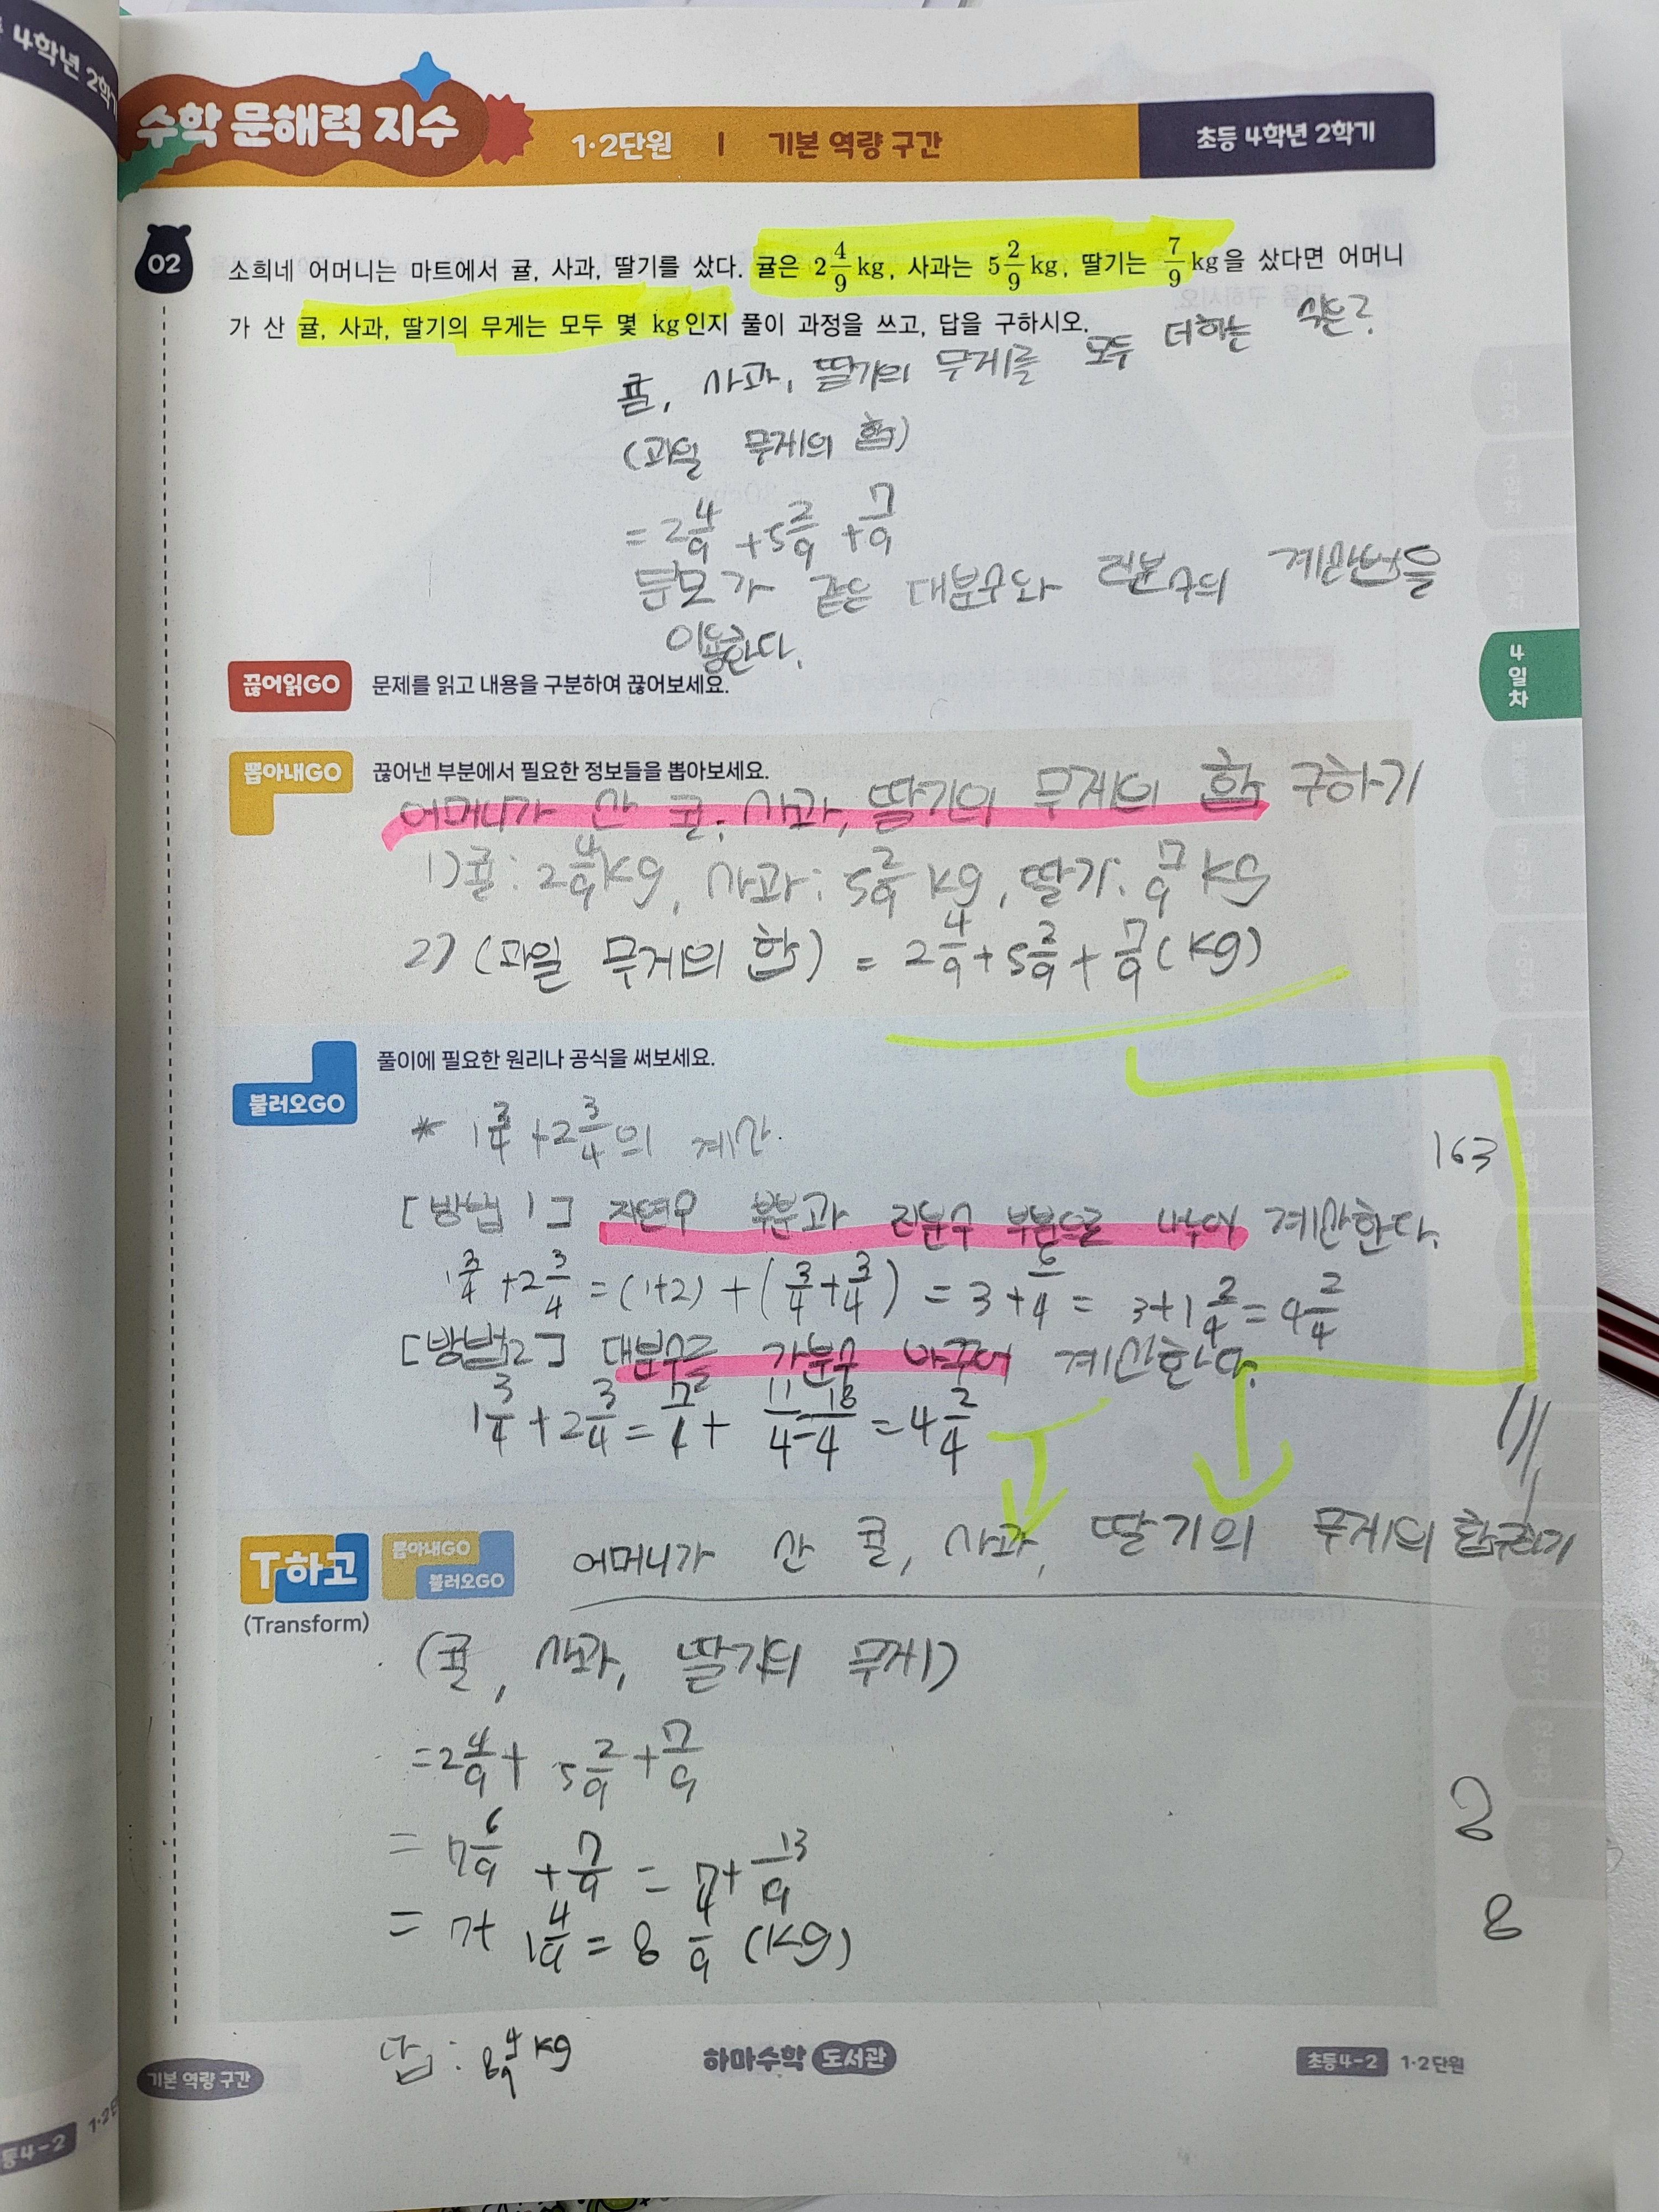 4학년 2학기
수학 문해력 지수
1·2단원 | 기본 역량 구간
초등 4학년 2학기
02
소희네 어머니는 마트에서 귤, 사과, 딸기를 샀다. 귤은 2 4/9 kg, 사과는 5 2/9 kg, 딸기는 7/9 kg을 샀다면 어머니
가 산 귤, 사과, 딸기의 무게는 모두 몇 kg인지 풀이 과정을 쓰고, 답을 구하시오.
귤, 사과, 딸기의 무게를 모두 더하는 식은?
(과일 무게의 합)
= 2 4/9 + 5 2/9 + 7/9
분모가 같은 대분수와 진분수의 계산법을
이용한다.
끊어읽GO 문제를 읽고 내용을 구분하여 끊어보세요.
4일차
뽑아내GO 끊어낸 부분에서 필요한 정보들을 뽑아보세요.
어머니가 산 귤, 사과, 딸기의 무게의 합 구하기
1) 귤: 2 4/9 kg, 사과: 5 2/9 kg, 딸기: 7/9 kg
2) (과일 무게의 합) = 2 4/9 + 5 2/9 + 7/9 (kg)
불러오GO 풀이에 필요한 원리나 공식을 써보세요.
* 1 3/4 + 2 3/4의 계산.
163
[방법 1] 자연수 부분과 진분수 부분으로 나누어 계산한다.
1 3/4 + 2 3/4 = (1+2) + (3/4 + 3/4) = 3 + 6/4 = 3 + 1 2/4 = 4 2/4
[방법2] 대분수를 가분수 바꾸어 계산한다.
1 3/4 + 2 3/4 = 7/4 + 11/4 = 18/4 = 4 2/4
T하고 뽑아내GO 불러오GO
(Transform)
어머니가 산 귤, 사과, 딸기의 무게의 합구하기
(귤, 사과, 딸기의 무게)
= 2 4/9 + 5 2/9 + 7/9
= 7 6/9 + 7/9 = 7 + 13/9
= 7 + 1 4/9 = 8 4/9 (kg)
2
8
답 : 8 4/9 kg
기본 역량 구간
하마수학 도서관
초등4-2 1·2단원
등4-2 1·2단